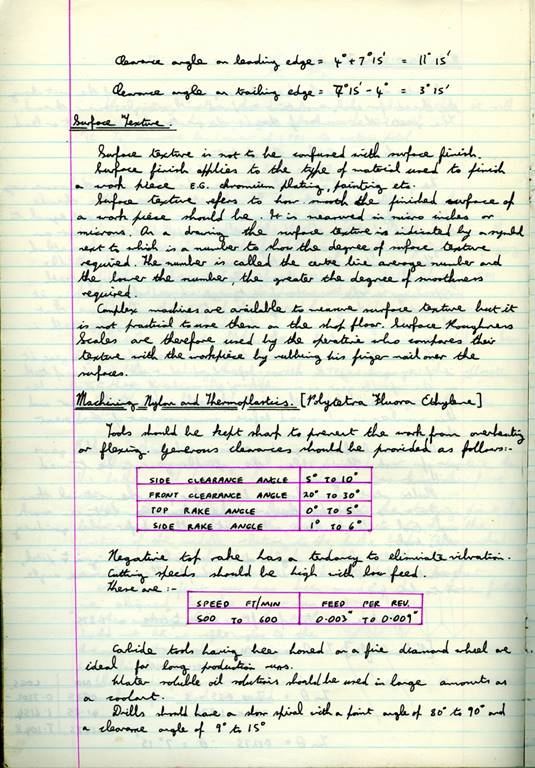 Clearance angle on leading edge = 4° + 7° 15' = 11° 15'
Clearance angle on trailing edge = 7° 15' - 4° = 3° 15'
Surface Texture.
Surface texture is not to be confused with surface finish.
Surface finish applies to the type of material used to finish
a work piece E.G. chromium plating, painting etc.
Surface texture refers to how smooth the finished surface of
a work piece should be. It is measured in micro inches or
microns. On a drawing the surface texture is indicated by a symbol
next to which is a number to show the degree of surface texture
required. The number is called the centre line average number and
the lower the number, the greater the degree of smoothness
required.
Complex machines are available to measure surface texture but it
is not practical to use them on the shop floor. Surface Roughness
Scales are therefore used by the operative who compares their
texture with the workpiece by rubbing his finger nail over the
surfaces.
Machining Nylon and Thermoplastics. [Polytetra Fluora Ethylene]
Tools should be kept sharp to prevent the work from overheating
or flexing. Generous clearances should be provided as follows:-
SIDE CLEARANCE ANGLE 5° TO 10°
FRONT CLEARANCE ANGLE 20° TO 30°
TOP RAKE ANGLE 0° TO 5°
SIDE RAKE ANGLE 1° TO 6°
Negative top rake has a tendancy to eliminate vibration.
Cutting speeds should be high with low feed.
These are :-
SPEED FT/MIN FEED PER REV.
500 TO 600 0.003" TO 0.009"
Carbide tools having been honed on a fine diamond wheel are
ideal for long production runs.
Water soluble oil solutions should be used in large amounts as
a coolant.
Drills should have a slow spiral with a point angle of 80° to 90° and
a clearance angle of 9° to 15°